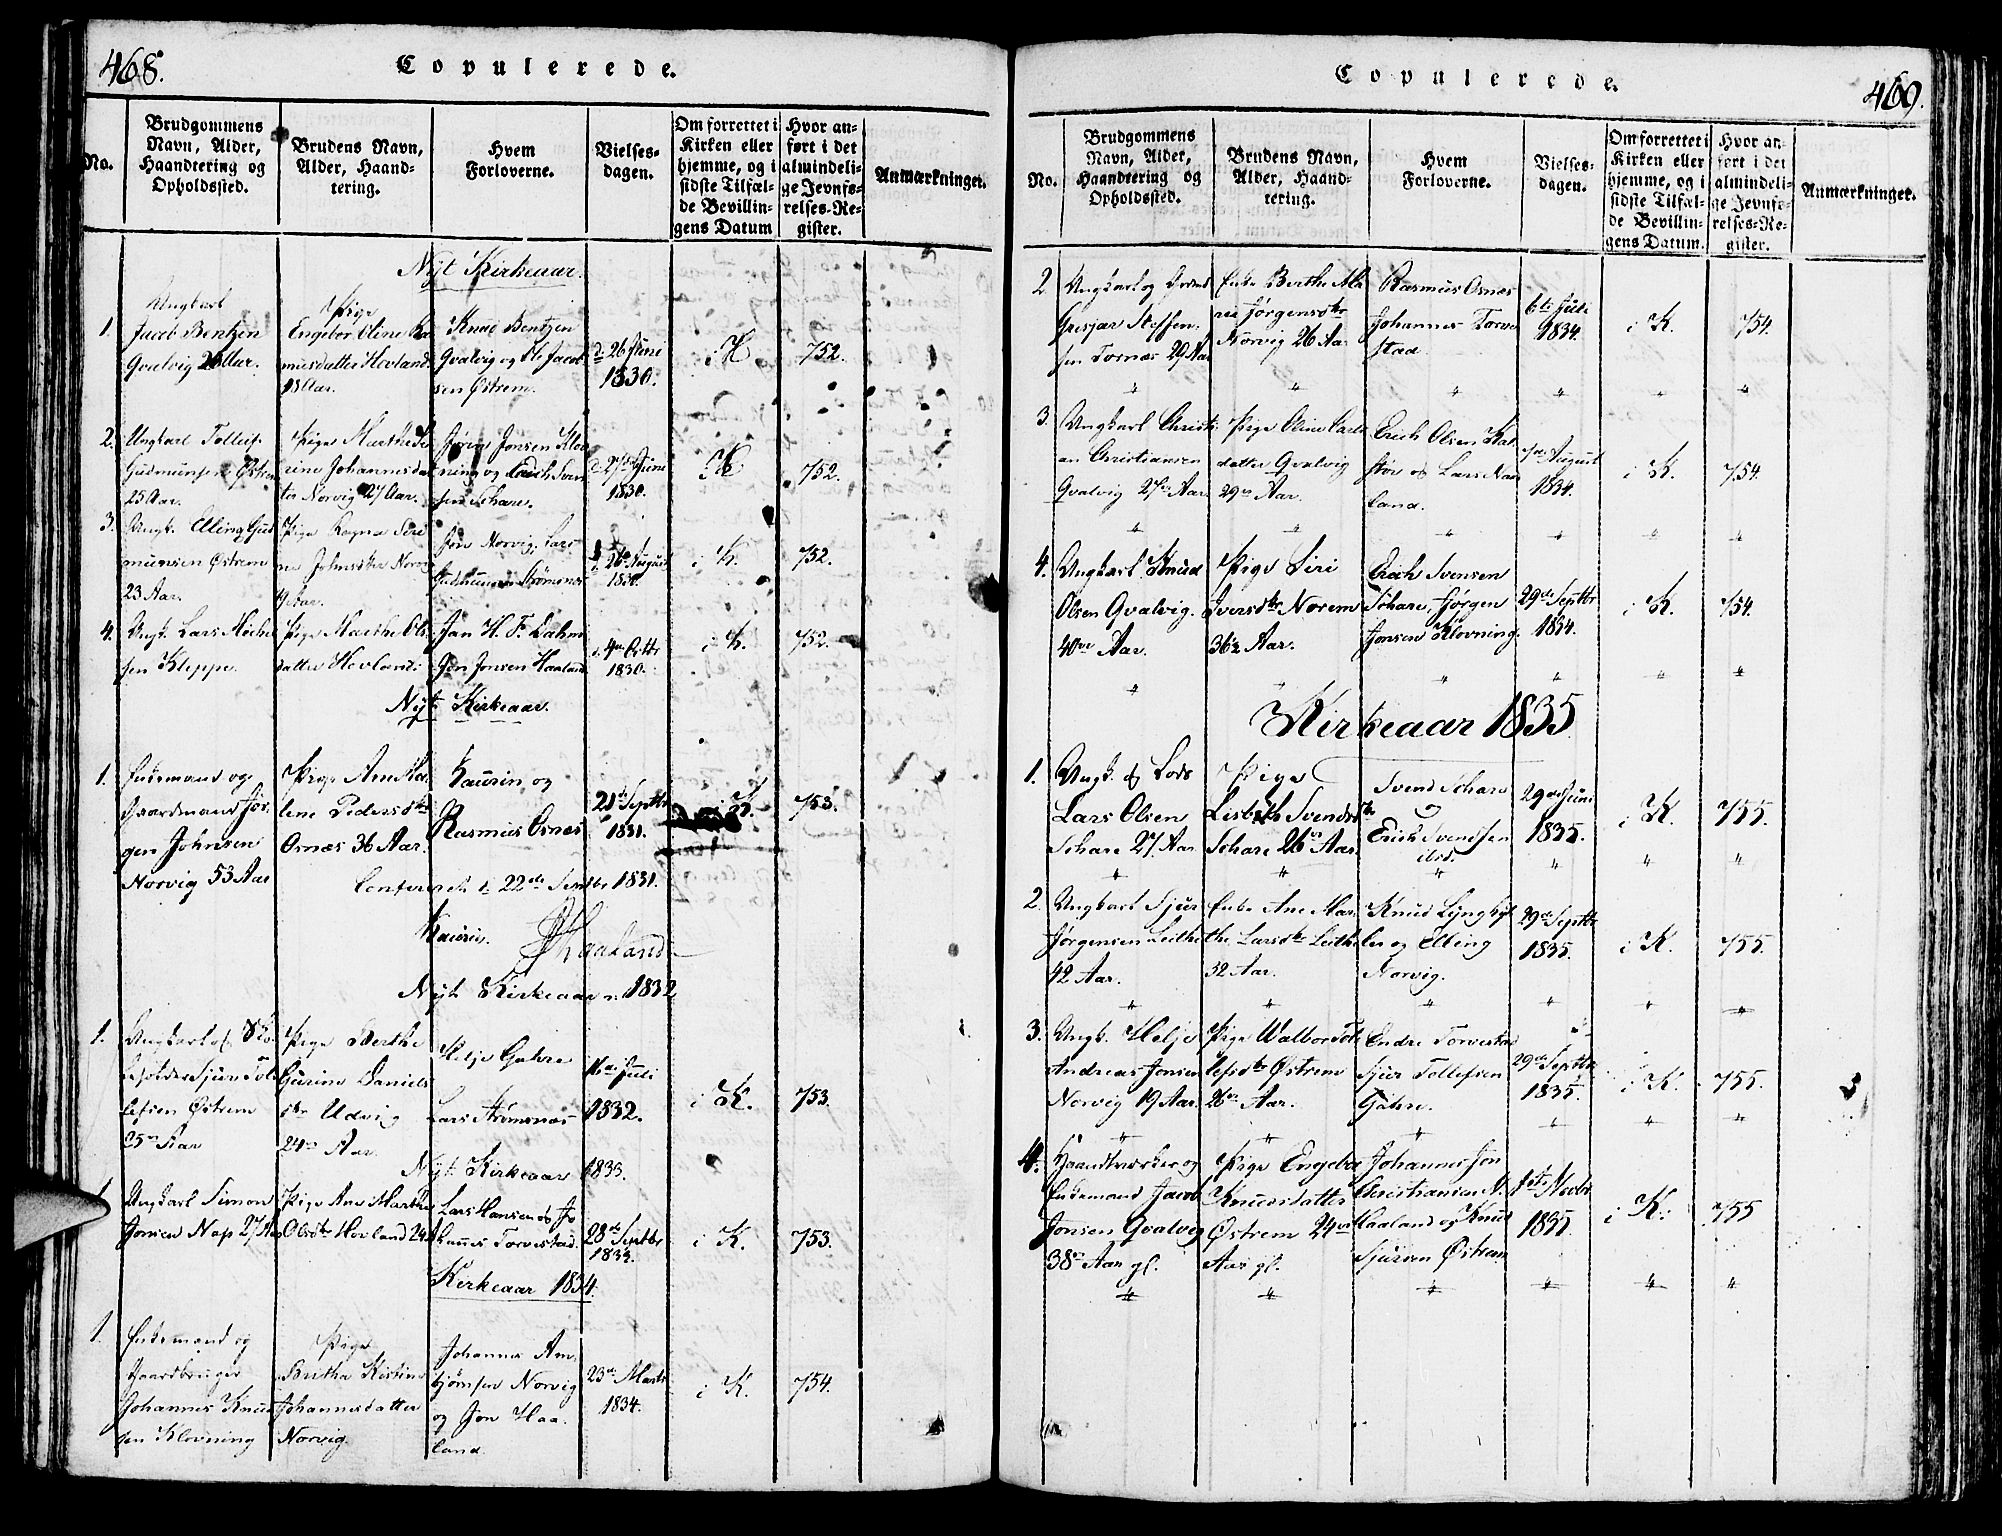 468.
Copulerede.
No.
Brudgommens
Navn, Alder,
Haandtering og
Opholdssted.
Brudens Navn,
Alder, Haand-
tering.
Hvem
Forloverne.
Vielses-
dagen.
Om forrettet i
Kirken eller
hjemme, og i
sidste Tilfæl-
de Bevillin-
gens Datum
Hvor an-
ført i det
almindeli-
ge Jevnfø-
relses-Re-
gister.
Anmærkninger.
Nÿt Kirkeaar.
1.
Ungkarl
Jacob Bentzen
Gvalvig
Pige
Engebor Oline
musdatter Hovland
18 Aar.
Knud Bentzen
Gvalvig og Ole Jacob
sen Østrem.
d 26 Juni
1830.
i K
752.
2.
Ungkarl Tollef
Gudmunsen Østrem
25 Aar.
Pige Marthe
rine Johannesdat
ter Norvig 27 Aar.
Jørgen Jonsen Klov
ning og Erich Sven
sen Schare.
27de Juni
1830.
i K
752.
3.
Ungk. Elling Gud
munsen Østrem
23 Aar.
Pige Ragna Seri
na Johnsdtr Norvig
19 Aar.
Jon Norvig, Lars
Gudmunsen Strømsnæs
26de August
1830.
i K.
752.
4.
Ungk. Lars Miche
sen Kleppe.
Pige Marthe Ols
datter Hovland.
Jan H. F. Dahm
Jon Jonsen Haaland
4de Octbr
1830.
i K.
752.
Nÿt Kirkeaar.
1.
Enkemand og
Gaardmand Jør
gen Johnsen
Norvig 53 Aar
Pige Ane Ma
lene Pedersdtr
Ornæs 36 Aar.
Kaurin, og
Rasmus Osnæs
21de Septbr
1831.
i K.
753.
Confereret d 22de Septbr 1831.
Kaurin.
Haaland
Nÿt Kirkeaar 1832
1.
Ungkarl og
Sjur Tol
lefsen Østrem
25 Aar
Pige Berthe
Gurine Daniels
dtr Udvig
24 Aar.
Helje Gahre
Lars Strømsnæs
16de Juli
1832.
i K.
753.
Nÿt Kirkeaar 1833.
1
Ungkarl Simon
Jonsen Næs 27 Aar
Pige Ane Marthe
Olsdtr Hovland 24
Lars Hansen og Jo
hannes Torvestad.
28de Septbr
1833.
i K.
753.
Kirkeaar 1834.
1.
Enkemand og
Gaardbruger
Johannes Knud
sen Klovning
Pige
Britha Kistine
Johannesdatter
Norvig.
Johannes Am
bjørnsen Norvig
og Jon Haa-
land.
23de Marts
1834.
i K.
754.
469.
Copulerede.
No.
Brudgommens
Navn, Alder,
Haandtering og
Opholdssted.
Brudens Navn,
Alder, Haand-
tering.
Hvem
Forloverne.
Vielses-
dagen.
Om forrettet i
Kirken eller
hjemme, og i
sidste Tilfæl-
de Bevillin-
gens Datum.
Hvor an-
ført i det
almindeli-
ge Jevnfø-
relses-Re-
gister.
Anmærkninger.
2
Ungkarl og
Gresjær Steffen-
sen Tornæs 29 Aar
Enke Berthe Ma
rie Jørgensdtr
Norvig 26 Aar.
Rasmus Osnæs
Johannes Torve
stad.
6te Juli
1834.
i K.
754.
3.
Ungkarl Christi
an Christiansen
Gvalvig 27 Aar
Pige Oline Carls
datter Gvalvig
29 Aar.
Erich Olsen Kal
støe og Lars Næs
land.
7de August
1834.
i K.
754.
4.
Ungkarl Knud
Olsen Gvalvig.
40 Aar.
Pige Siri
Iversdtr Norem
36 Aar.
Erich Svensen
Schare, Jørgen
Jonsen Klovning.
29de Septbr
1834.
i K.
754.
Kirkeaar 1835
1.
Ungk. & Lods
Lars Olsen
Schare 27 Aar
Pige
Lisbeth Svendsdtr
Schare 26 Aar.
Svend Schare
og
Erich Svendsen
ibid.
29de Juni
1835.
i K.
755.
2.
Ungkarl Sjur
Jørgensen Leithe
42 Aar.
Enke Ane Mar
the Larsdtr Leithe
32 Aar.
Knud Lÿnghøi
len og Elling
Norvig.
29de Septbr
1835.
i K.
755.
3.
Ungk. Helje
Andreas Jonsen
Norvig 19 Aar.
Pige Walbor Tol
lefsdtr Østrem
26 Aar.
Endre Torvestad
Sjur Tollefsen
Gahre.
29de Septbr
1835.
i K.
755.
4.
Haandtværker og
Enkemand Jacob
Jonsen Gvalvig
38 Aar gl.
Pige Engebor
Knudsdatter
Østrem 24
Aar gl.
Johannes Jon
Christiansen N.
Haaland og Knud
Sjursen Østrem
1ste Novbr
1835.
i K.
755